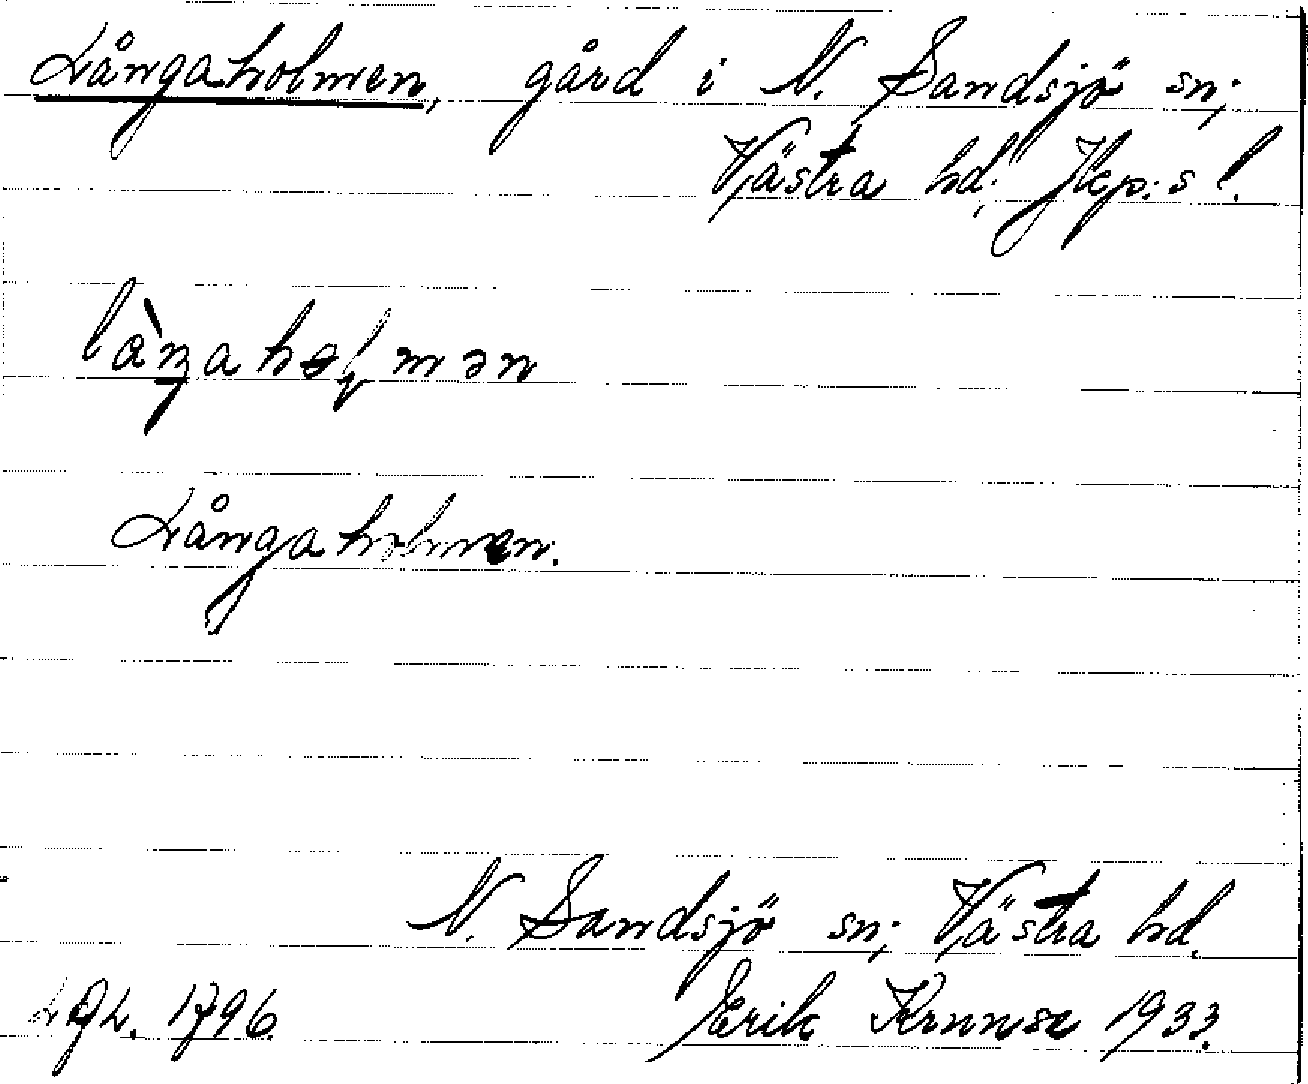 Långaholmen, gård i N. Sandsjö sn;
Västra hd; Jkp:s l.
Långaholmen.
N. Sandsjö sn; Västra hd.
1796. Erik 1933.